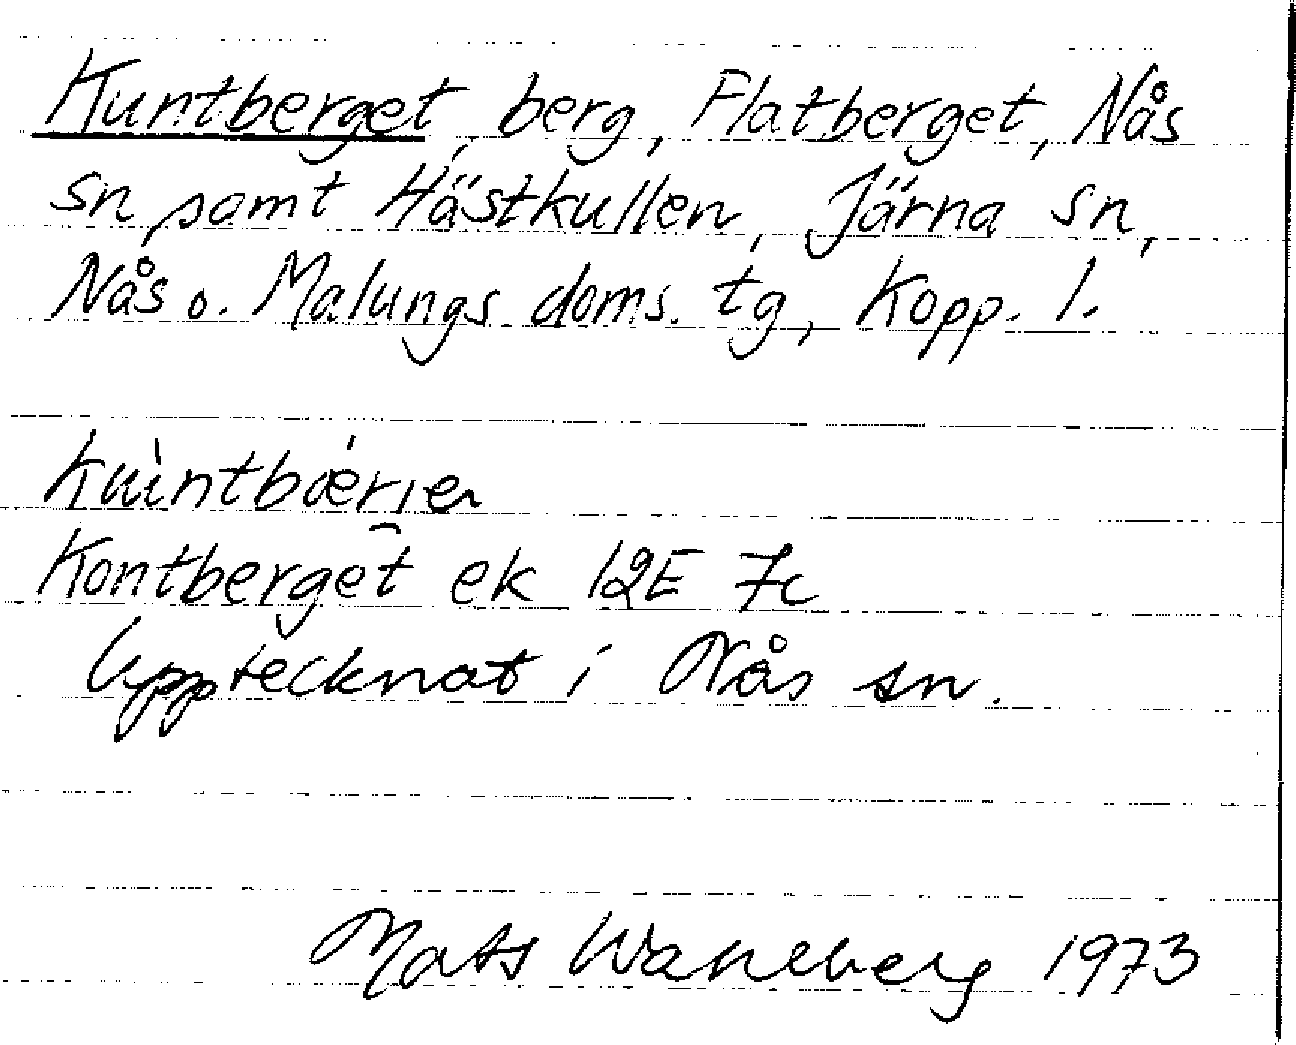 Kuntberget, berg, Flatberget, Nås
sn samt Hästkullen, Järna sn,
Nås o. Malungs doms. tg, Kopp. l.
Kontberget ek 12E 7c
Upptecknat i Nås sn.
Mats Wahlberg 1973